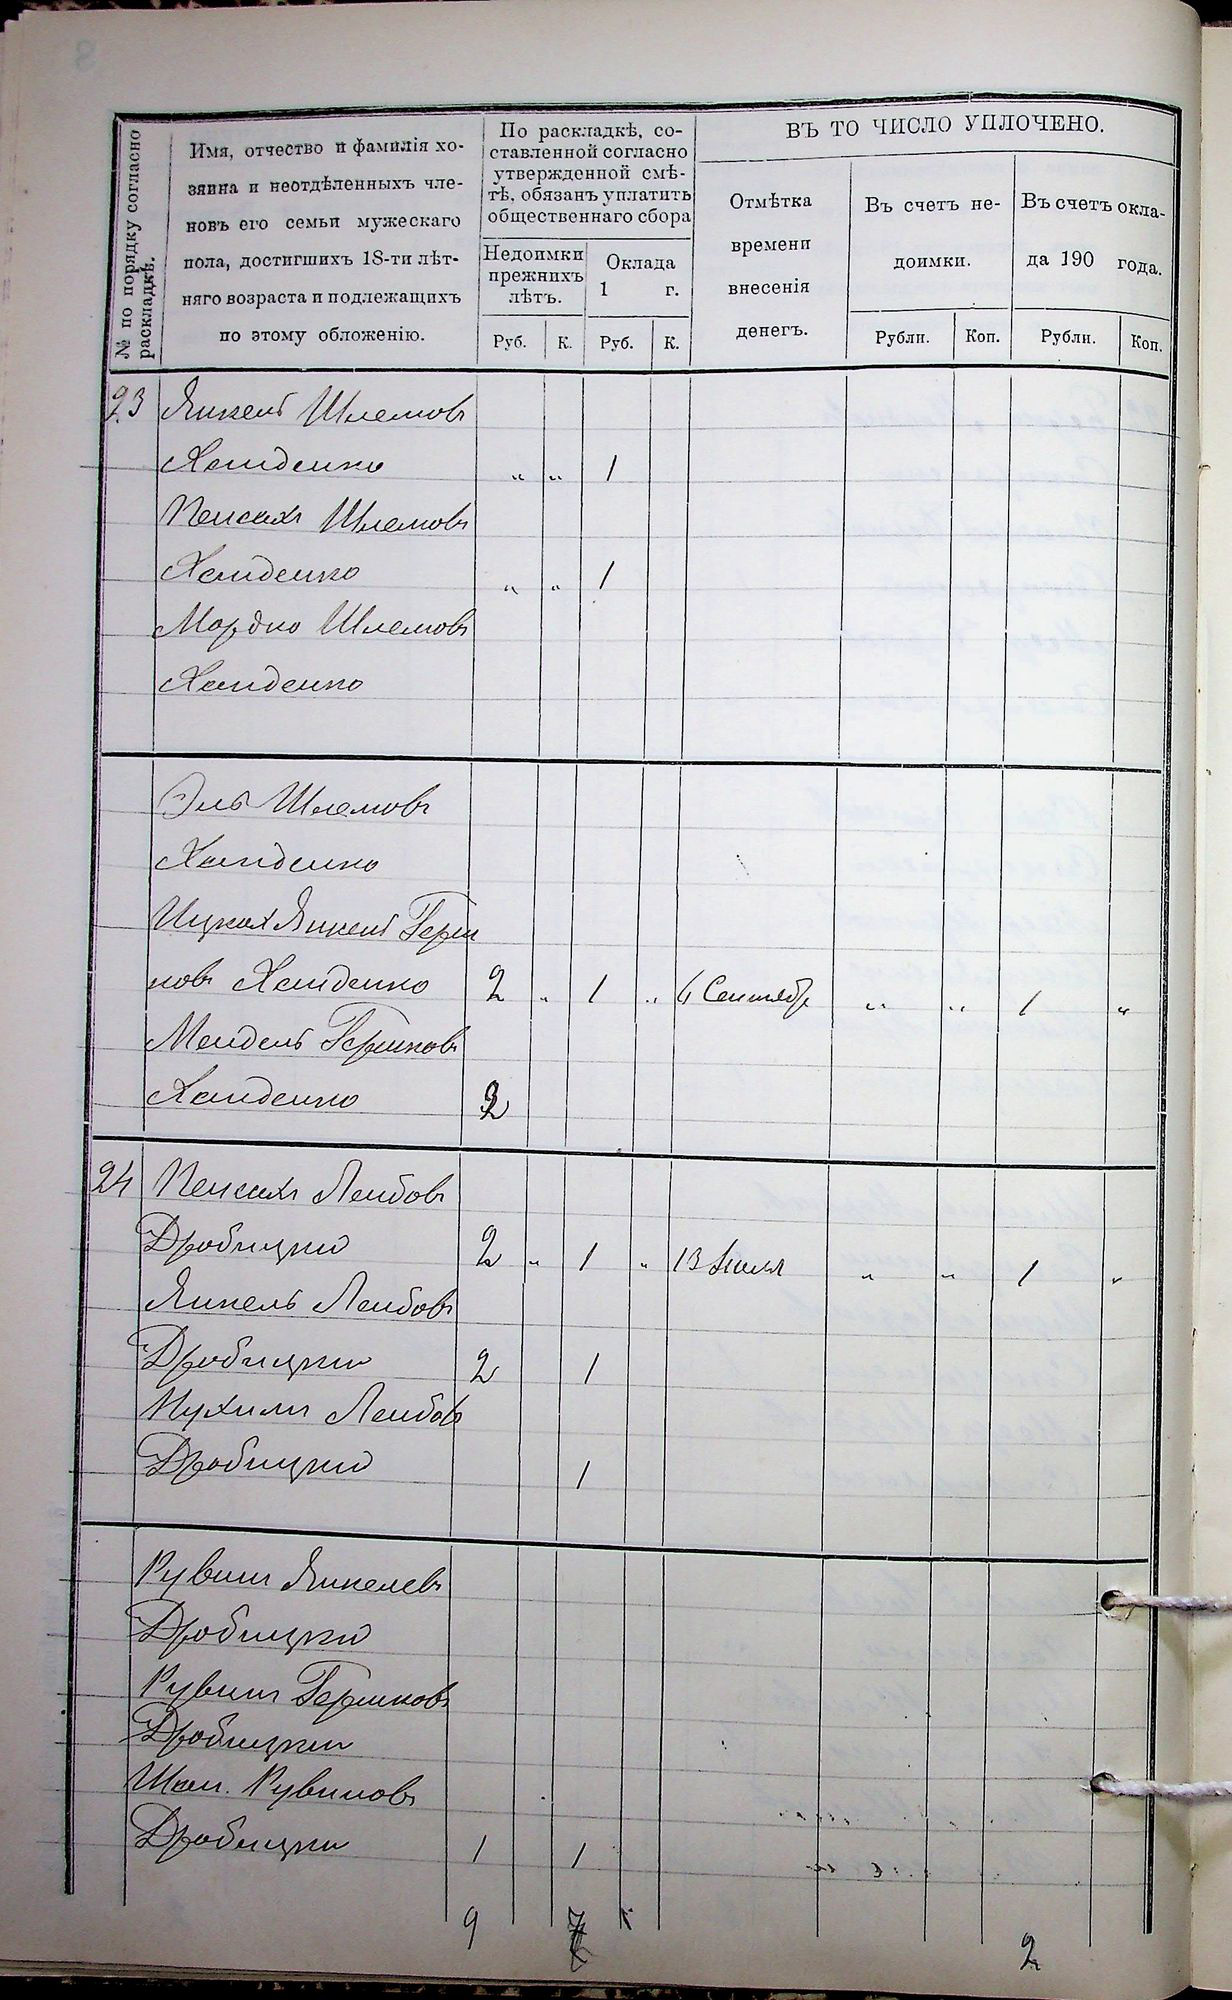 № по порядку согласно
раскладкѣ.
Имя, отчество и фамилія хо-
зяина и неотдѣленныхъ чле-
новъ его семьи мужескаго
пола, достигшихъ 18-ти лѣт-
няго возраста и подлежащихъ
по этому обложенію.
По раскладкѣ, со-
ставленной согласно
утвержденной смѣ-
тѣ, обязанъ уплатить
общественнаго сбора
Недоимки
прежнихъ
лѣтъ.
Оклада
1 г.
Руб. К. Руб. К.
ВЪ ТО ЧИСЛО УПЛОЧЕНО.
Отмѣтка
времени
внесенія
денегъ.
Въ счетъ не-
доимки.
Въ счетъ окла-
да 190 года.
Рубли. Коп. Рубли. Коп.
23 Янкель Шлемовъ
Хайденко „ „ 1
Пейсахъ Шлемовъ
Хайденко „ „ 1
Мордко Шлемовъ
Хайденко
Эль Шлемовъ
Хайденко
Ицках Янкель Герш
ковъ Хайденко 2 „ 1 „ 6 Сентябр „ „ 1 „
Мендель Гершковъ
Хайденко
24 Пейсахъ Лейбовъ
Дробицкий 2 „ 1 „ 13 Июля „ „ 1 „
Янкель Лейбовъ
Дробицкий 2 1
Нухимъ Лейбовъ
Дробицкий 1
Рувинъ Янкелевъ
Дробицкий
Рувинъ Гершковъ
Дробицкий
Рувиновъ
Дробицкий 1 1
9 7 2